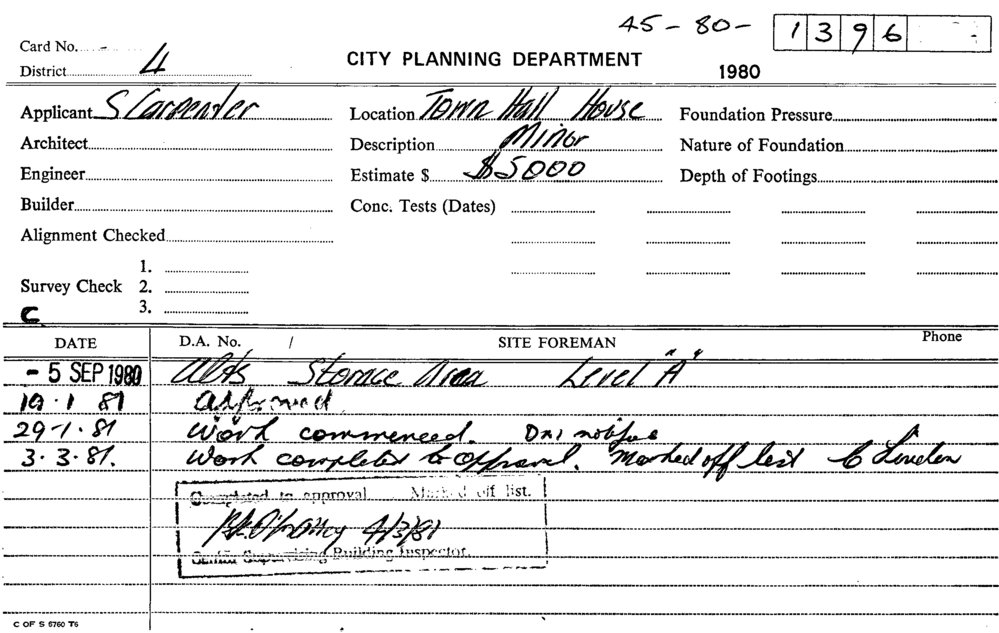 45-80- 1396
Card No. -
District 4
CITY PLANNING DEPARTMENT
1980
Applicant S Carpenter
Location Town Hall House
Foundation Pressure
Architect
Description Minor
Nature of Foundation
Engineer
Estimate $ $5000
Depth of Footings
Builder
Conc. Tests (Dates)
Alignment Checked
1.
Survey Check 2.
3.
C
DATE D.A. No. / SITE FOREMAN Phone
- 5 SEP 1980 Alts Storage Area Level "A"
19.1 81 approved
29-1.81 Work commenced.
3.3.81. Work completed to approval. Marked off list C
Completed to approval Marked off list.
4/3/81
Senior Supervising Building Inspector.
C OF S 6760 T6